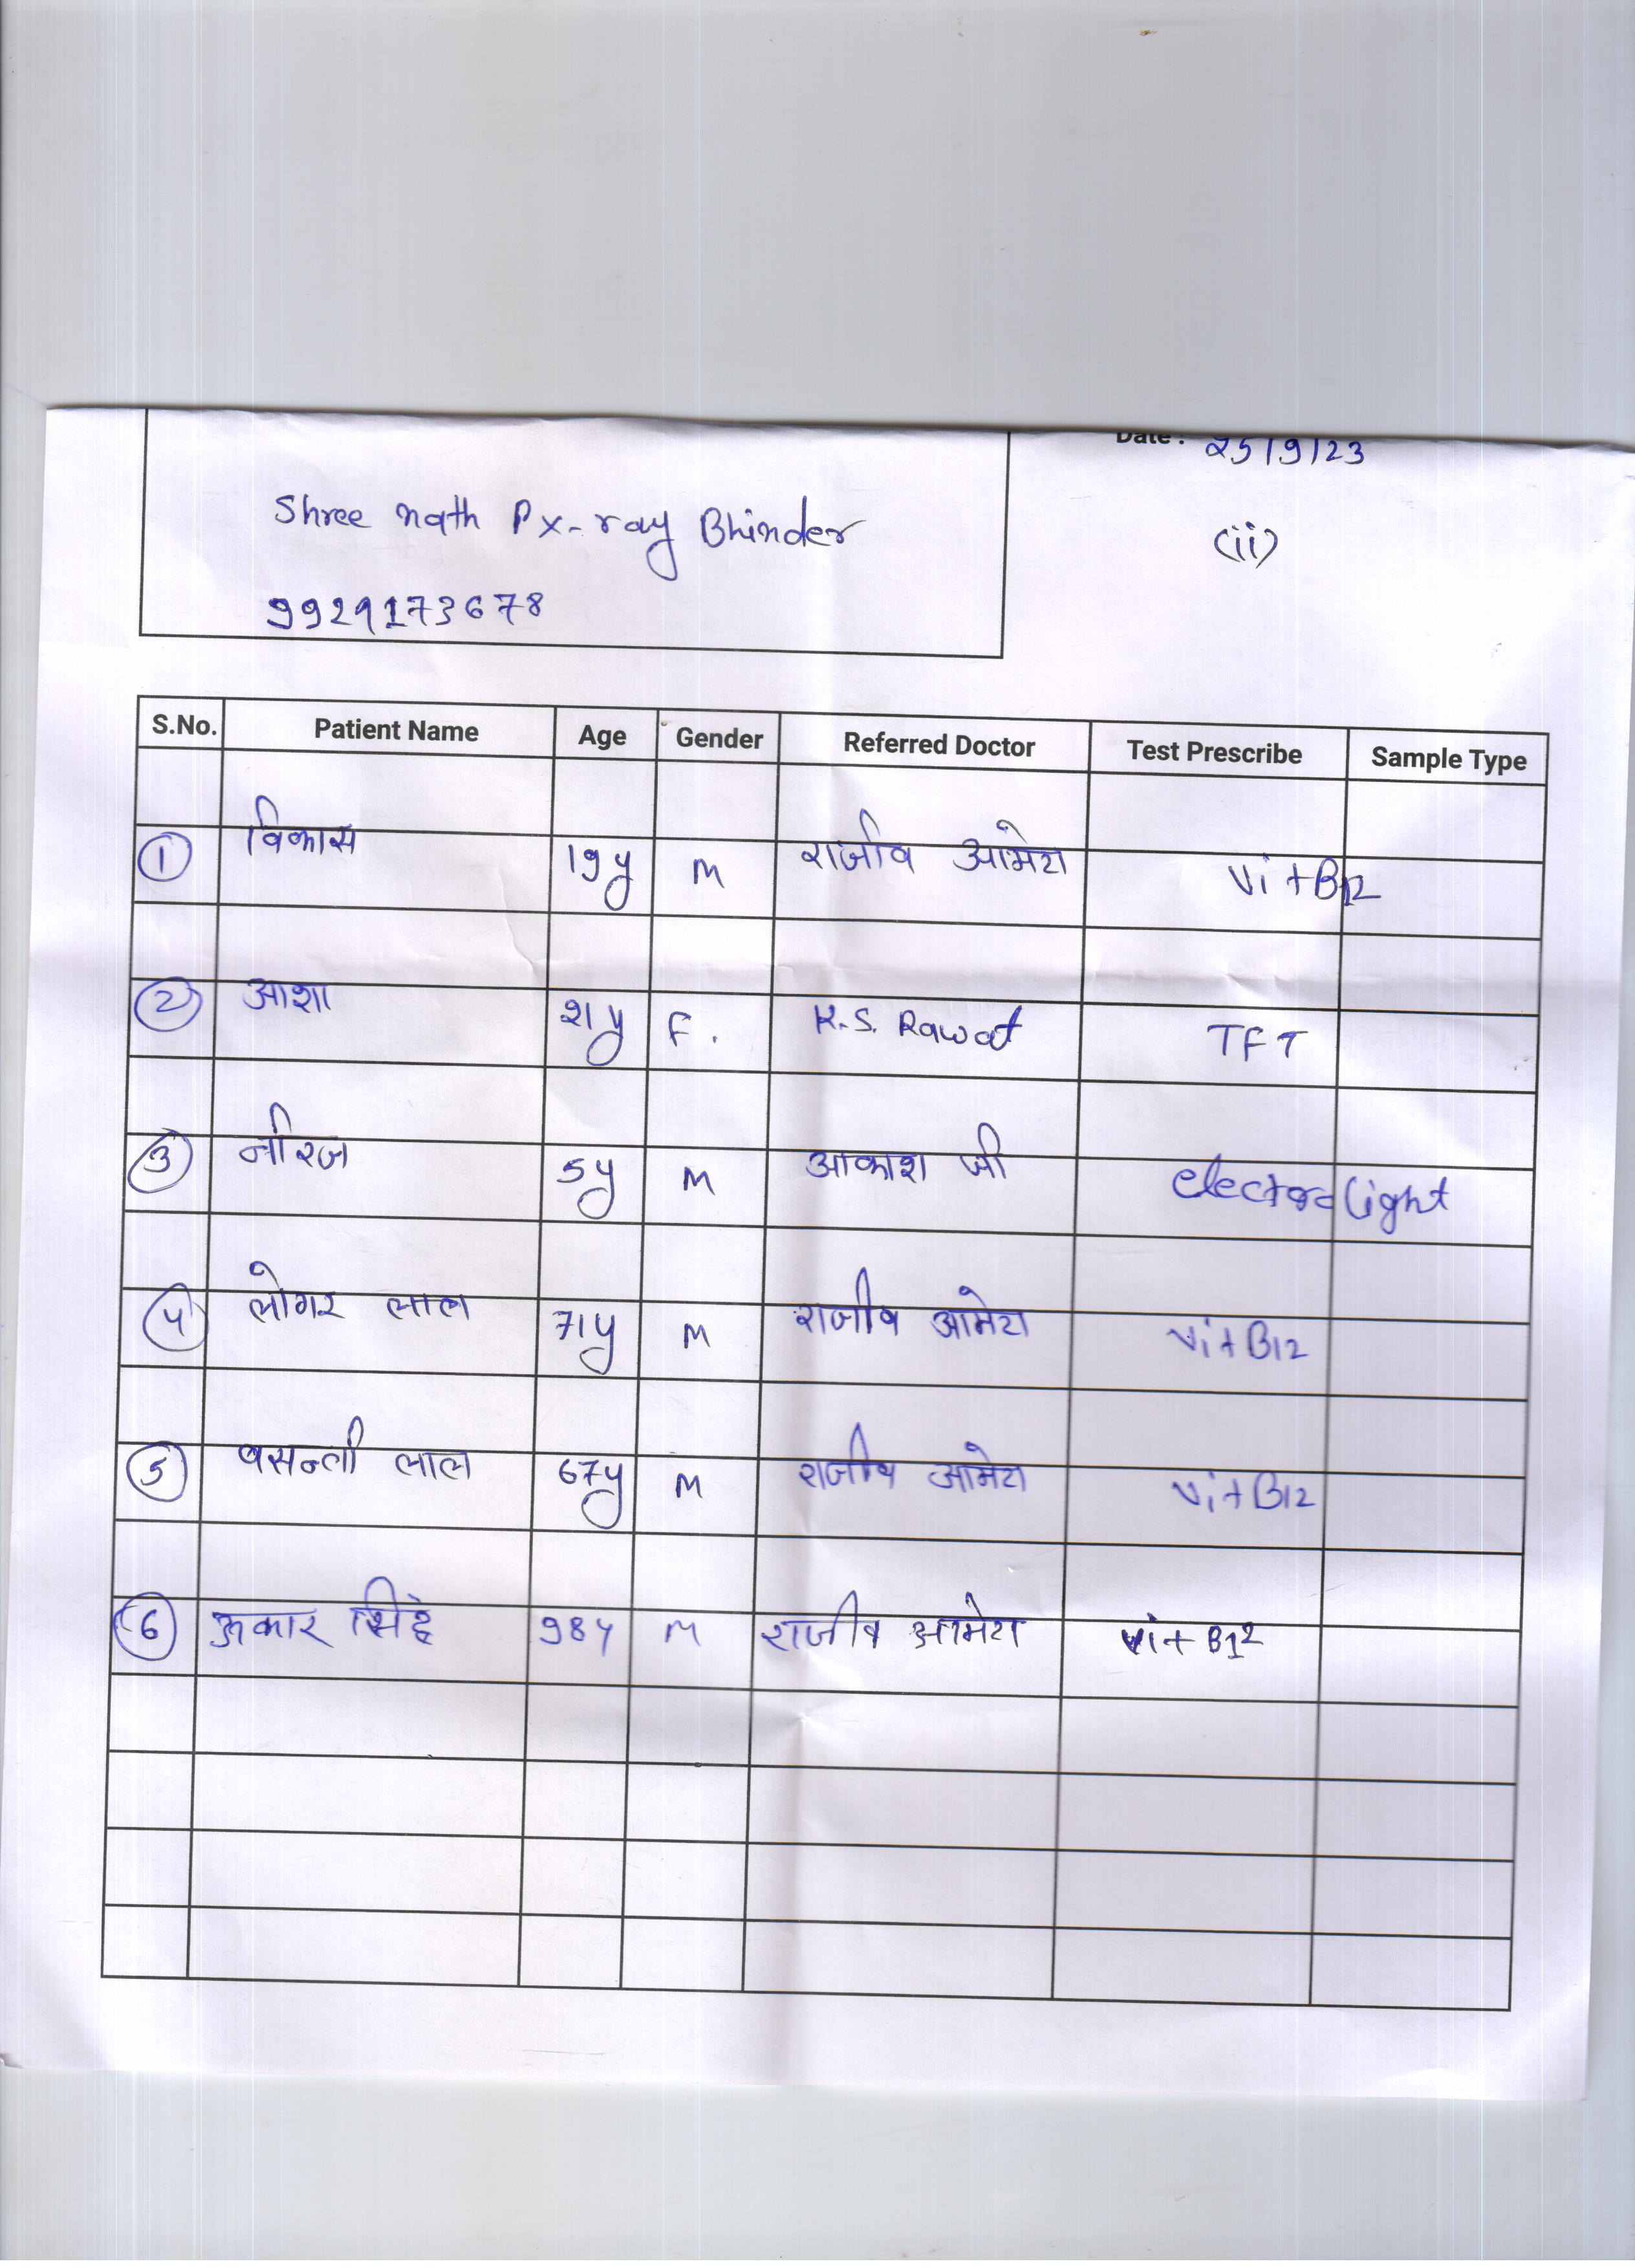 Date : 25/9/23
Shree nath Px-ray Bhinder
(ii)
9929173678
S.No. Patient Name Age Gender Referred Doctor Test Prescribe Sample Type
1 विकास 19y M राजीव आमेटा Vit B12
2 आशा 21y F. K.S. Rawat TFT
3 नीरज 5y M आकाश जी electrolight
4 लोगर लाल 71y M राजीव आमेटा Vit B12
5 वसन्ती लाल 67y M राजीव आमेटा Vit B12
6 सिंह 98y M राजीव आमेटा Vit B12